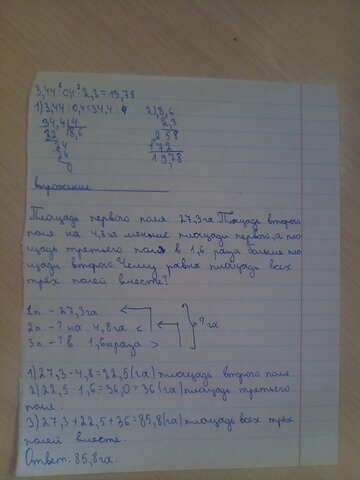 3,44 : 0,4 · 2,3 = 19,78
1) 3,44 : 0,4 = 34,4 : 4 2) 8,6
34,4 | 4 2,3
32 8,6 258
24 172
24 19,78
0
выражение
Площадь первого поля 27,3 га. Площадь второго
поля на 4,8 га меньше площади первого, а пло
щадь третьего поля в 1,6 раза больше пло
щади второй. Чему равна площадь всех
трёх полей вместе?
1п - 27,3 га
2п - ? на 4,8 га < ? га
3п - ? в 1,6 раза >
1) 27,3 - 4,8 = 22,5 (га) площадь второго поля.
2) 22,5 · 1,6 = 36,0 = 36 (га) площадь третьего
поля.
3) 27,3 + 22,5 + 36 = 85,8 (га) площадь всех трёх
полей вместе.
Ответ: 85,8 га.